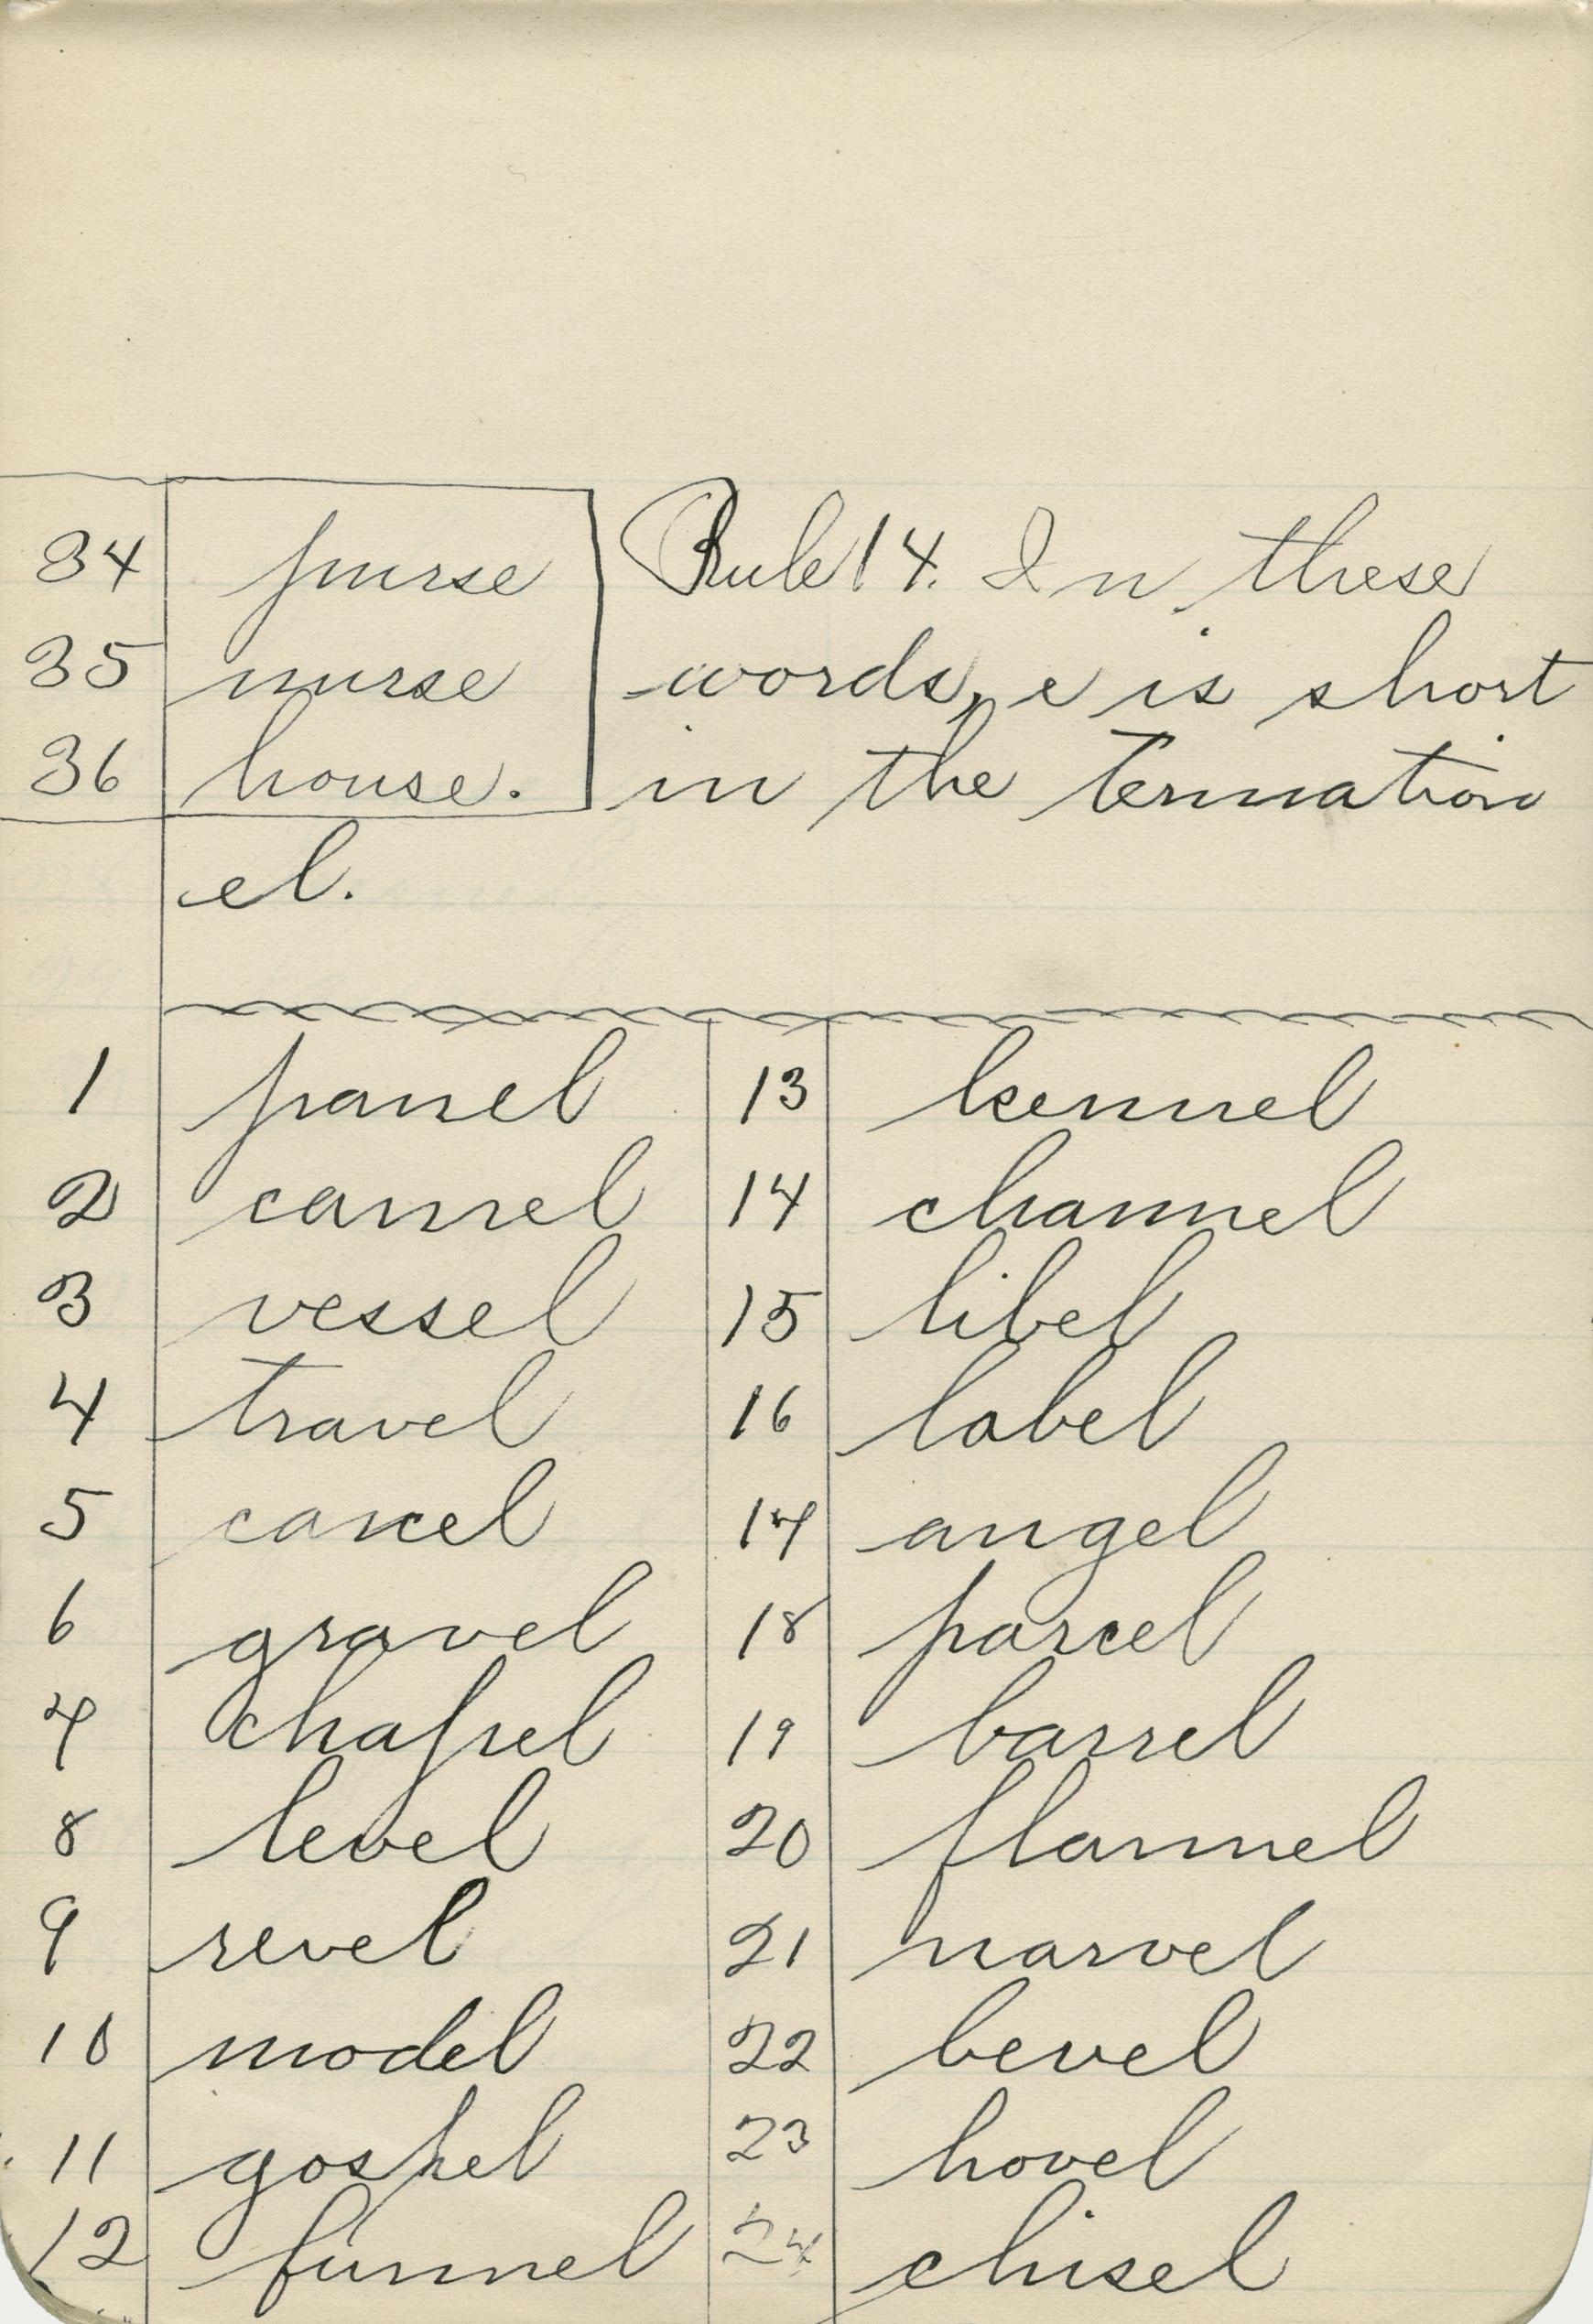 34 purse
35 nurse
36 house.
Rule 14. In these
words, e is short
in the Termation
el.
1 panel
2 camel
3 vessel
4 travel
5 cancel
6 gravel
7 chapel
8 level
9 revel
10 model
11 gospel
12 funnel
13 kennel
14 channel
15 libel
16 label
17 angel
18 parcel
19 barrel
20 flannel
21 narvel
22 bevel
23 hovel
24 chisel